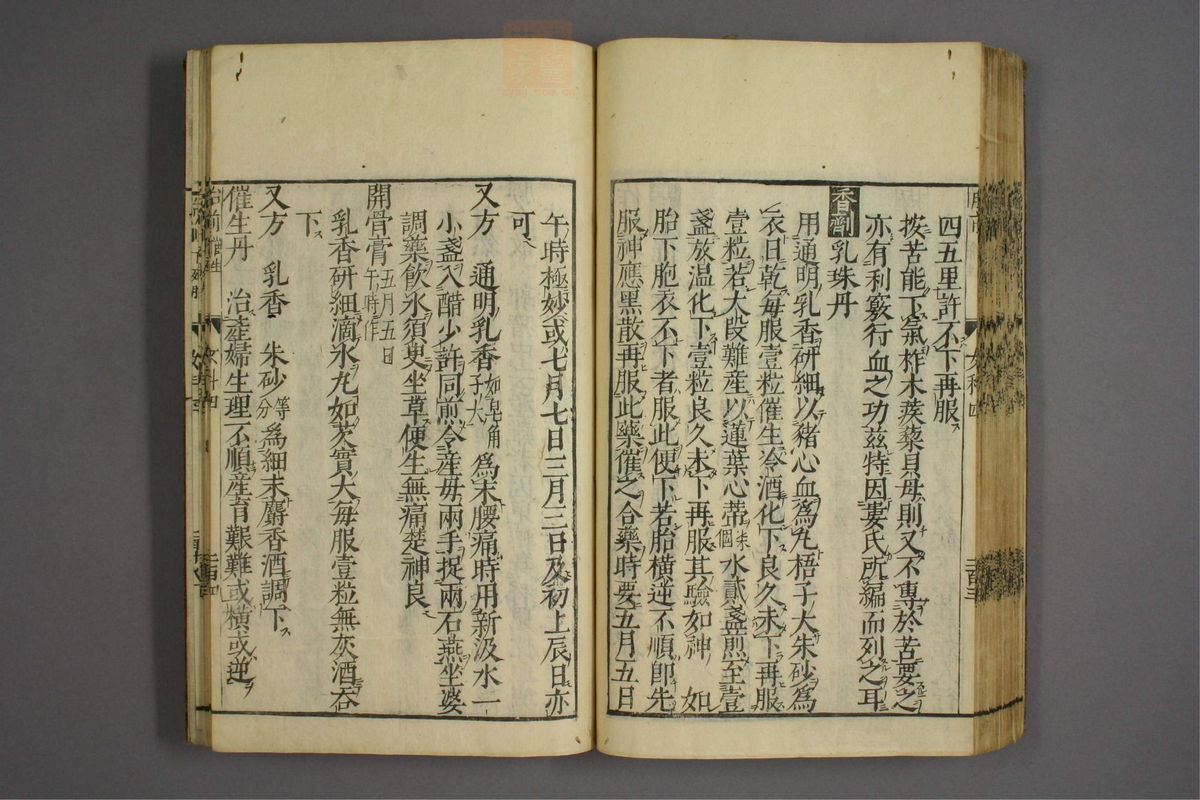 四五里許不下再服
按苦能下氣柞木蒺藜貝母則又不專於苦要之
亦有利竅行血之功茲特因婁氏所編而列之耳
香劑乳珠丹
用通明乳香研細以豬心血為丸梧子大朱砂為
衣日乾每服壹粒催生冷酒化下良久未下再服
壹粒若大段難産以蓮葉心蒂水貳盞煎至壹
盞放温化下壹粒良久未下再服其驗如神 如
胎下胞衣不下者服此便下若胎橫逆不順即先
服神應黑散再服此藥催之合藥時要五月五日
午時極妙或七月七日三月三日及初上辰日亦
可
又方 通明乳香子大如皂角為末腰痛時用新汲水一
小盞入醋少許同煎令産母兩手捉兩石燕坐婆
調藥飲水須臾坐草便生無痛楚神良
開骨膏五月五日午時作
乳香研細滴水丸如芡實大每服壹粒無灰酒吞
下
又方 乳香 朱砂等分為細末麝香酒調下
催生丹 治産婦生理不順産育艱難或橫或逆